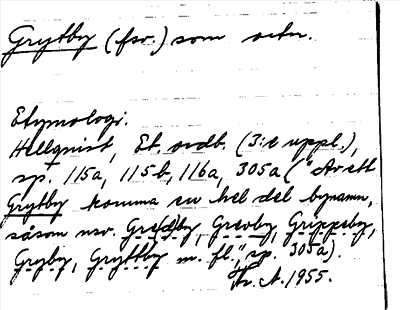 Grytby (fsv.) som ortn.
Etymologi.
Hellquist, Et. ordb. (3:e uppl.),
sp. 115a, 115b, 116a, 305a ("Av ett
Grytby komma en hel del bynamn,
såsom nsv. Gre(d)by, Greby, Grippeby,
Gryby, Grytby m. fl.", sp. 305a).
Th. A. 1955.